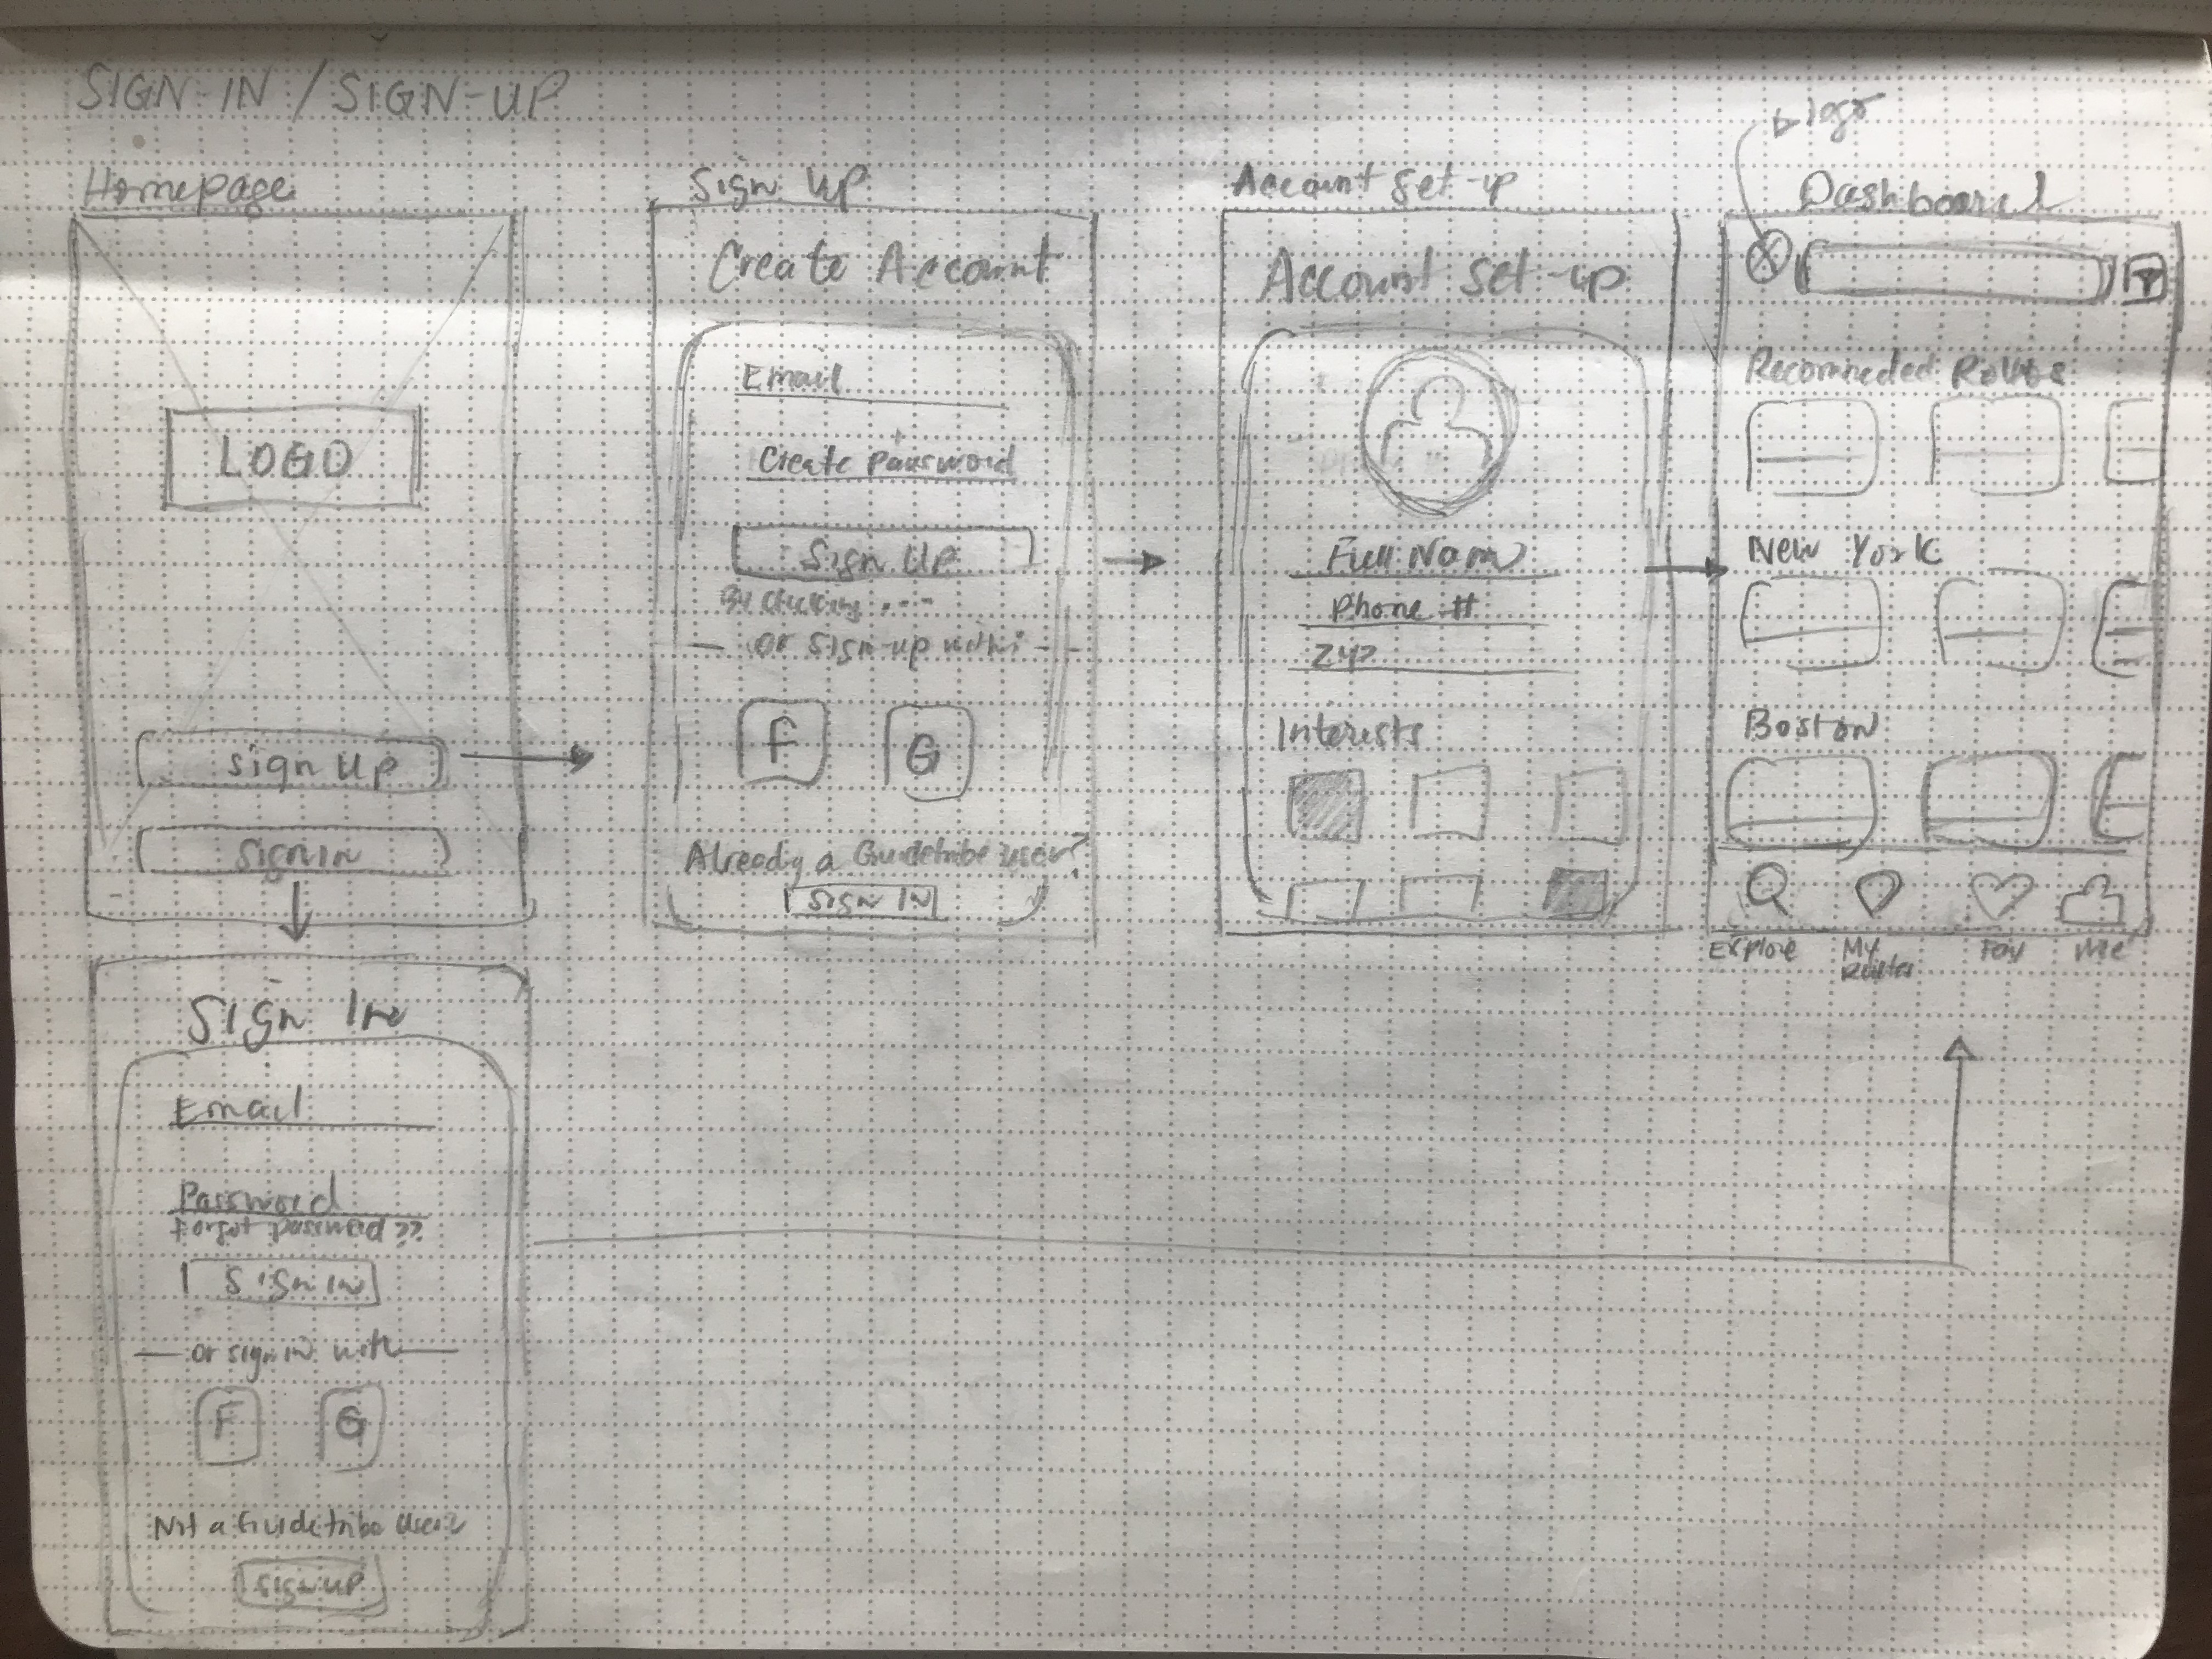 SIGN-IN / SIGN-UP
Homepage
LOGO
sign up
sign in
Sign In
Email
Password
forgot password??
SIGN IN
— or sign in with —
F
G
Not a Guidetribe user
SIGN UP
Sign up
Create Account
Email
Create Password
Sign UP
— or sign-up with: —
F
G
Already a Guidetribe user?
SIGN IN
Account set-up
Account Set-up
Full Name
Phone #
ZIP
Interests
logo
Dashboard
New York
Boston
Explore
My
Fav
Me